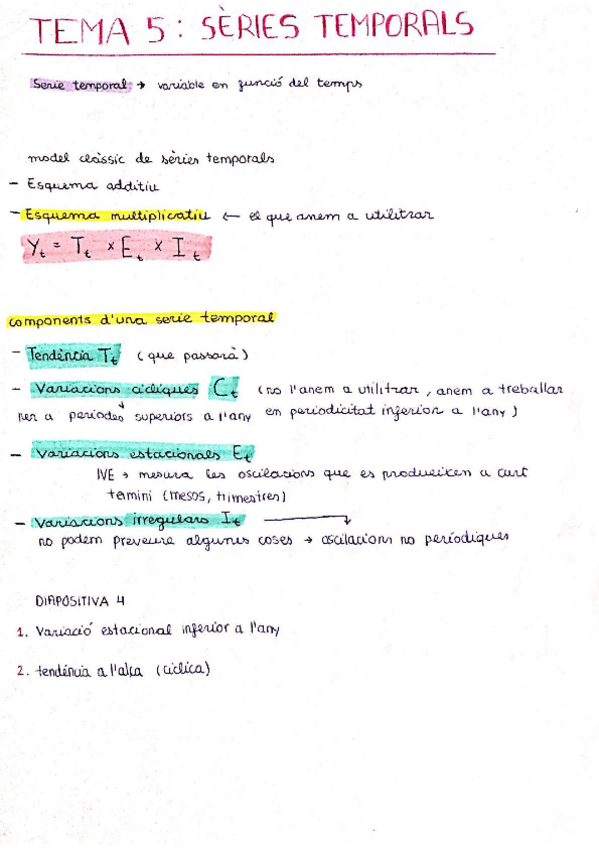 TEMA 5: SÈRIES TEMPORALS
Serie temporal: → variable en funció del temps
model clàssic de sèries temporals
- Esquema additiu
- Esquema multiplicatiu ← el que anem a utilitzar
Yt = Tt × Et × It
components d'una serie temporal
- Tendència Tt (que passarà)
- Variacions cícliques Ct (no l'anem a utilitzar, anem a treballar
per a períodes superiors a l'any en periodicitat inferior a l'any)
- Variacions estacionals Et
IVE → mesura les oscilacions que es produeixen a curt
termini (mesos, trimestres)
- Variacions irregulars It
no podem preveure algunes coses → oscilacions no periodiques
DIAPOSITIVA 4
1. Variació estacional inferior a l'any
2. tendència a l'alça (cíclica)